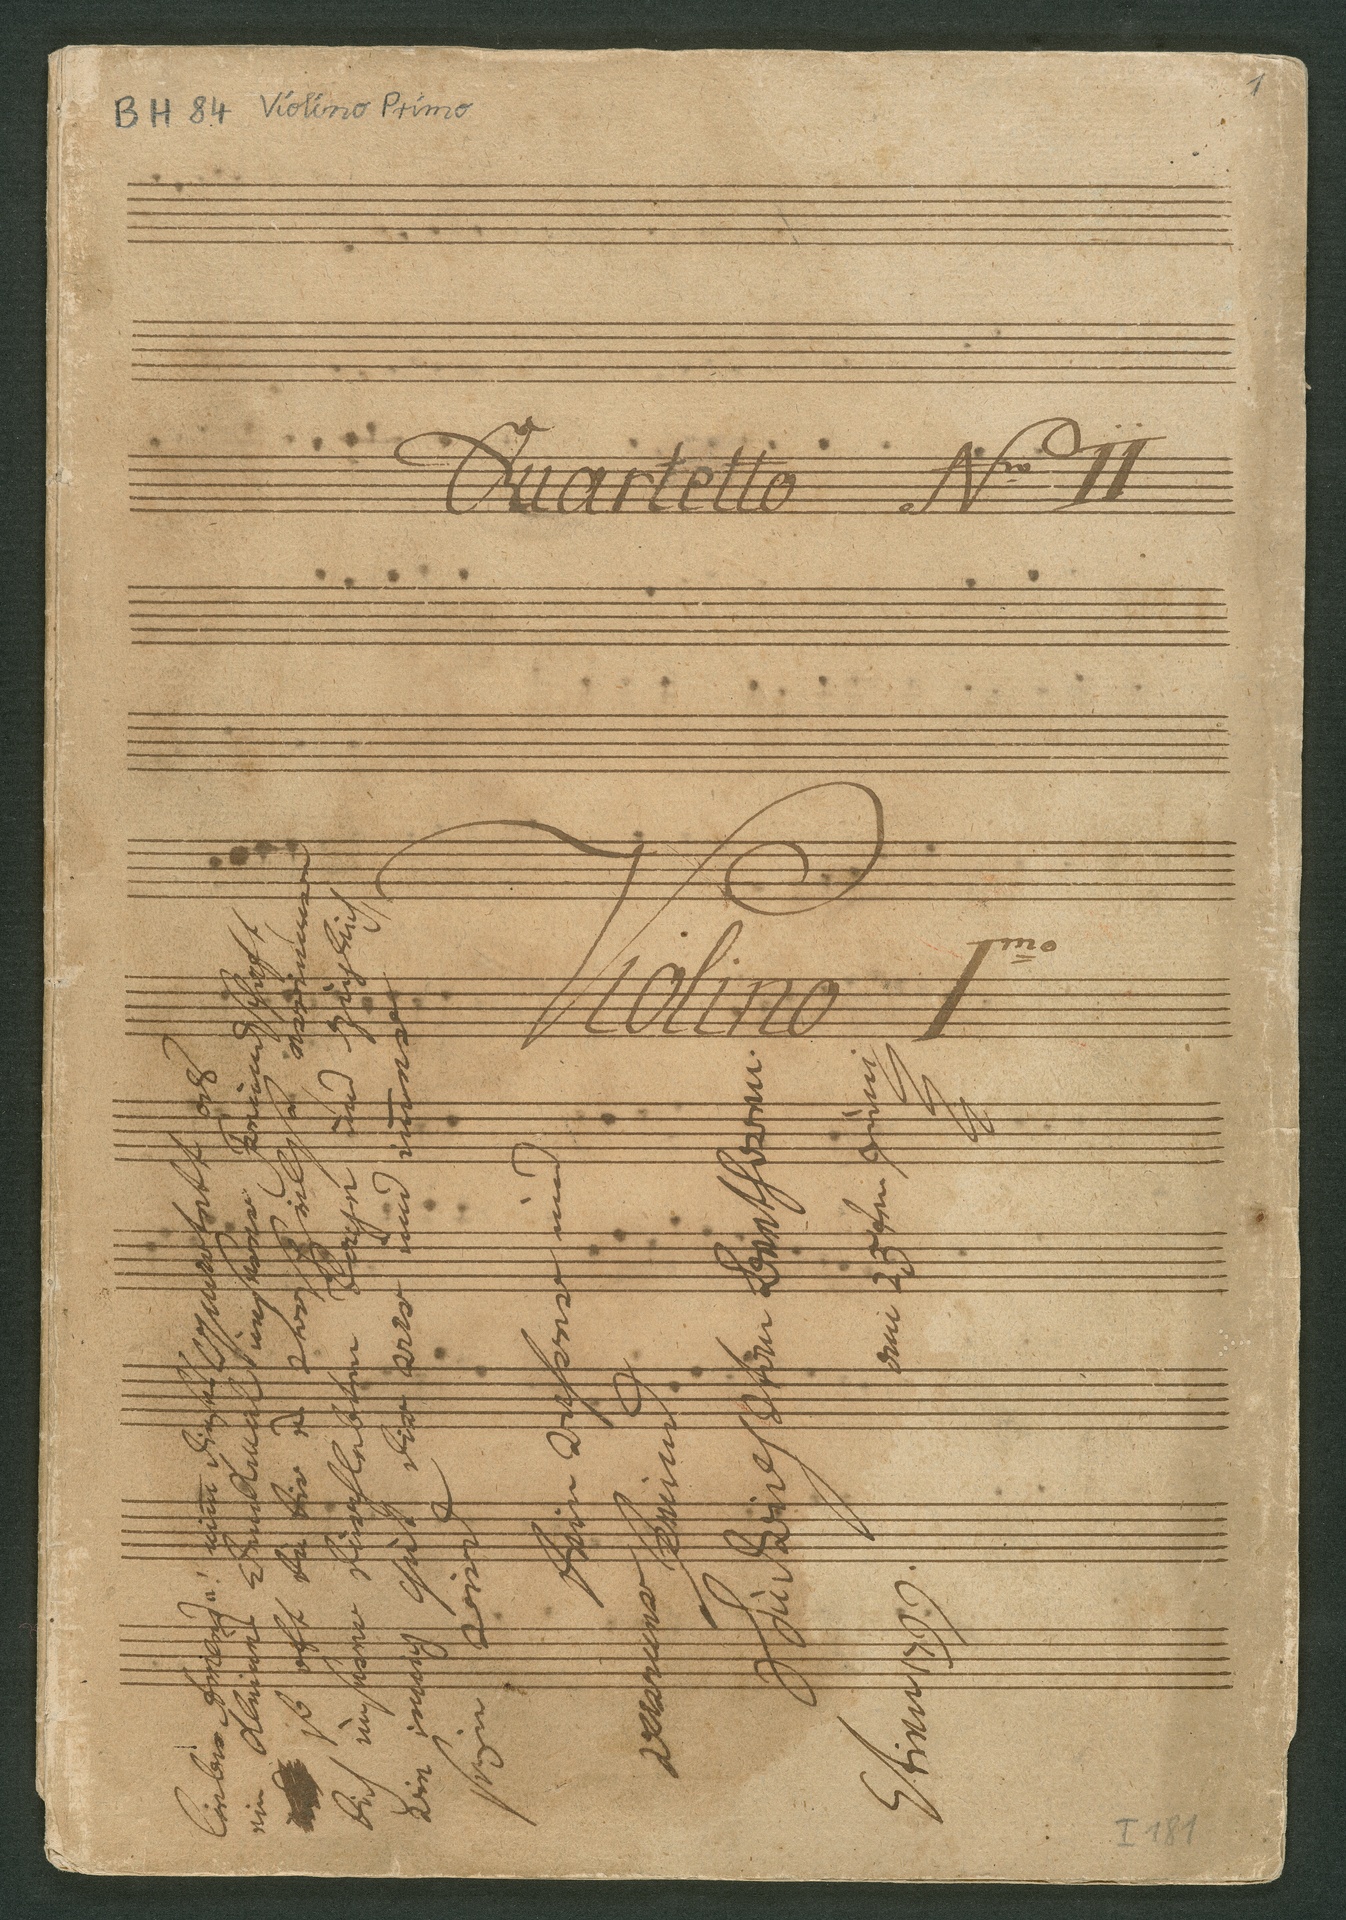 BH 84 Violino Primo
1
Quartetto Nro II
Violino Imo
lieber Amenda! nim dieses Quartett als
ein kleines Denkmal unserer Freundschaft
so oft du dir es vorspielst erinnere
dich unserer durchlebten Tage und zugleich
wie innig gut dir war und immer
sein wird
dein wahrer und
warmer Freund
Ludwig van Beethoven
Vien 1799.
am 25ten Juni
I 181